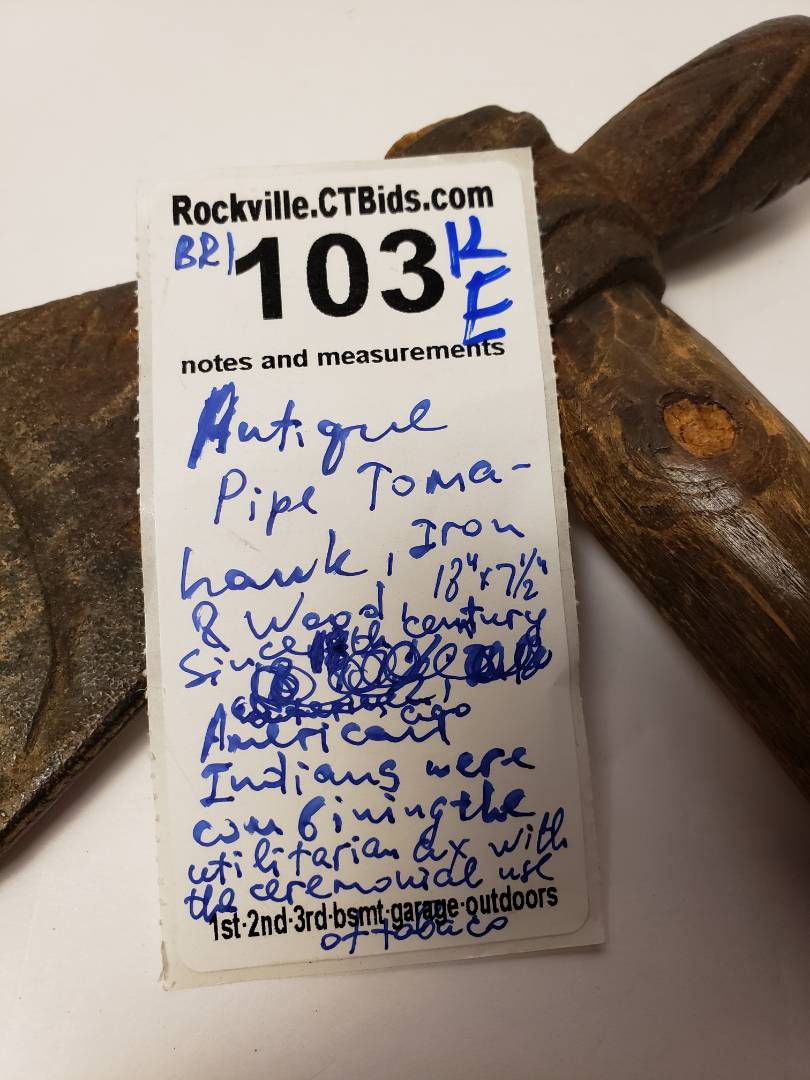 Rockville.CTBids.com
BR1 103 KE
notes and measurements
Antique
Pipe Toma-
hawk, Iron
& Wood, 18" x 7 1/2"
Since th century
American
Indians were
combining the
utilitarian ax with
the ceremonial use
1st·2nd·3rd·bsmt·garage·outdoors
of tabaco